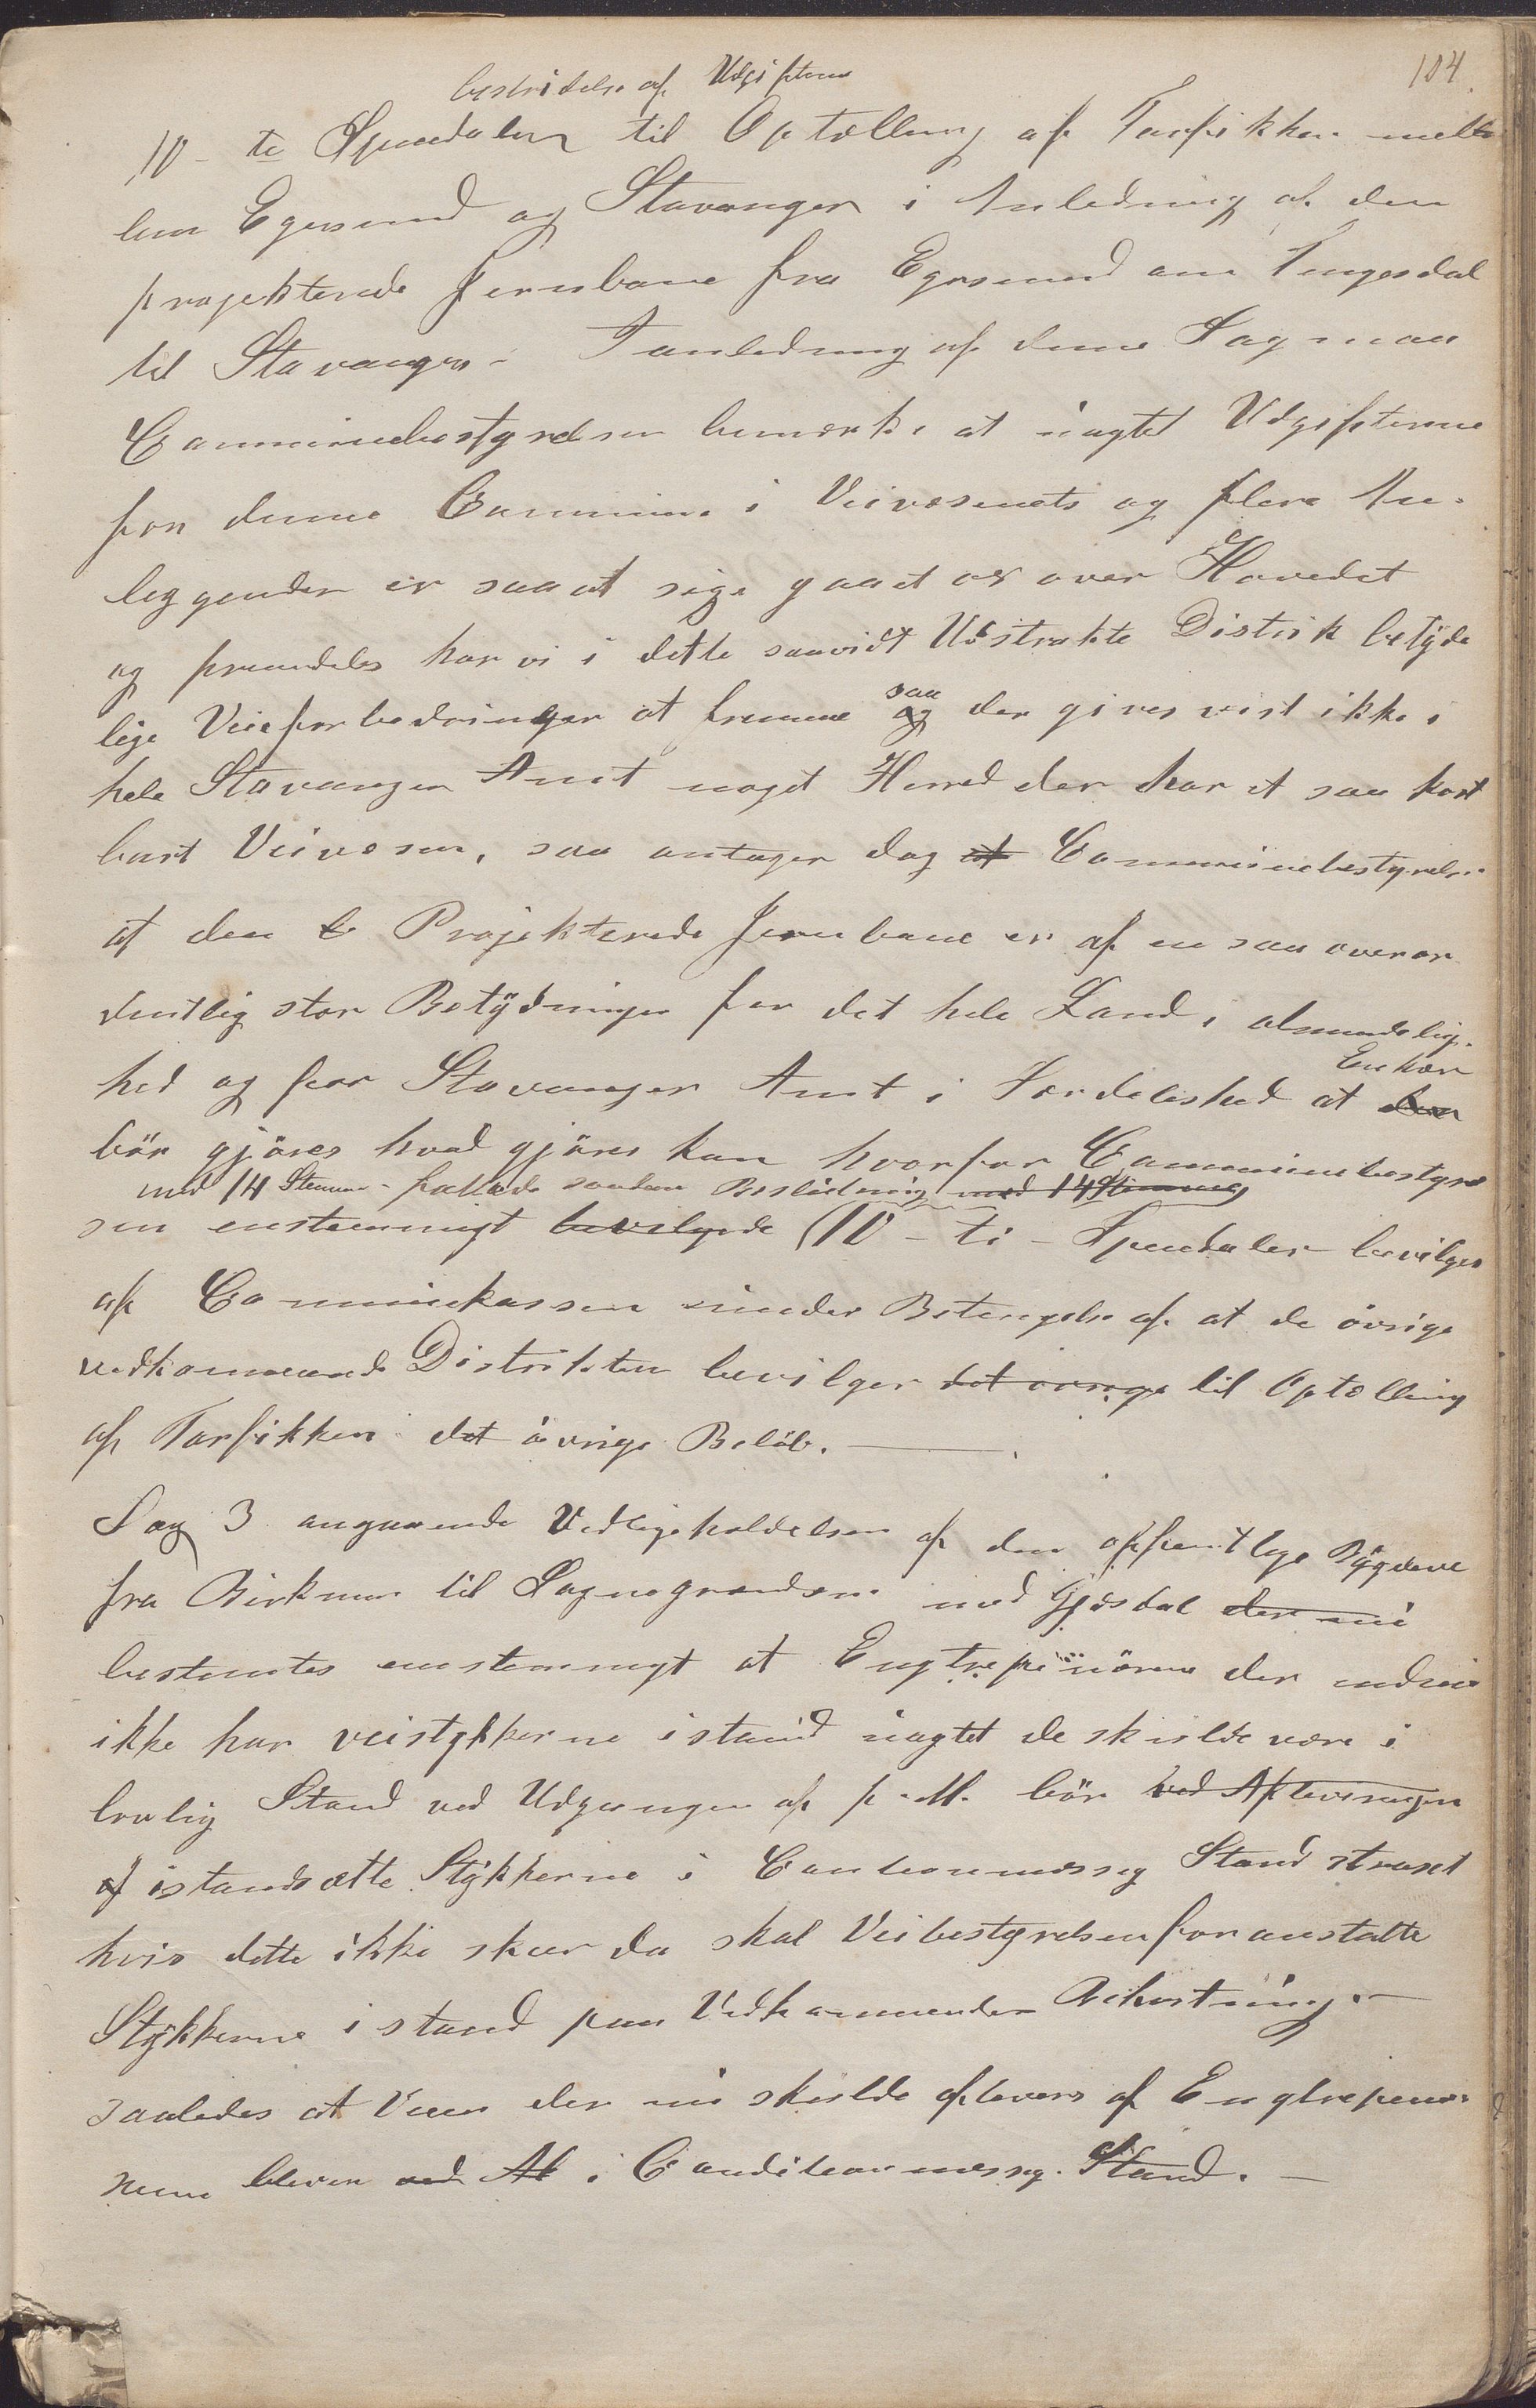 104.
bestridelse af Udgifterne
10 - ti Spesdaler til Optælling af Tarfikken mell
lem Egersund og Stavanger i Anledning af den
projekterede Jernbane fra Egersund om Tengesdal
til Stavanger - I anledning af denne Sag maa
Communebestyrelsen bemærke at uagtet Udgifterne
for denne Commune i Veivæsenets og flere An-
leggender er saa at sige gaaet os over Hovedet
og fremdeles har vi i dette saavidt Udstrakte Distrik betyde
saa
lige Veieforbedringer at fremme og der gives vist ikke i
hele Stavanger Amt noget Herred der har et saa kost
bart Veivæsen, saa antager dog at Communebestyrelsen
at den b Projekterede Jernbane er af en saa overor
dentlig stor Betydning for det hele Land i almindelig-
Enhver
hed og for Stavanger Amt i Særdeleshed at den
bör gjöres hvad gjöres kan hvorfor Communebestyrel
med 14 Stemmer fattede saadan Beslutning med 14 Stemmer
sen enstemmigt bevilgede (10 - ti - Spesdaler bevilges
af Communekassen under Betingelse af at de övrige
vedkommende Distrikter bevilger det övrige til Optælling
af Tarfikken det övrige Belöb.
Sag 3 angaaende Vedligeholdelsen af den offentlige Bygdevei
fra Birkmoe til Sognegrændsen med Gjesdal der nu
bestemtes enstemmigt at Engtrepenörerne der endnu
ikke har veistykkerne istand uagtet de skulde være i
lovlig Stand ved Udgangen af f. M. bör ved Afleveringen
af istandsætte Stykkerne i Contraktmessig Stand straxt
hvis dette ikke skeer da skal Veibestyrelsen foranstalte
Stykkerne i stand paa Vedkommendes Bekostning. -
saaledes at Veien der nu skulde afleveres af Engtrepenö-
rerne bliver ved Af i Conditionmessig Stand. -